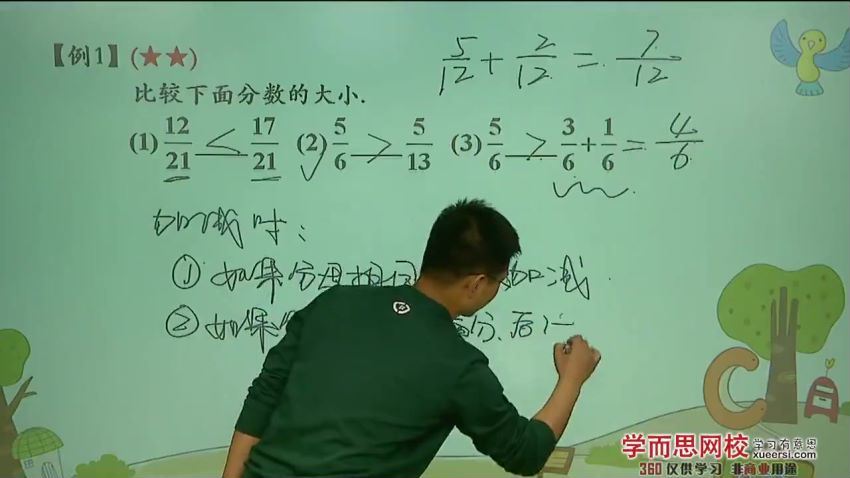 【例1】(★★)
5/12 + 2/12 = 7/12
比较下面分数的大小.
(1) 12/21 < 17/21 (2) 5/6 > 5/13 (3) 5/6 > 3/6 + 1/6 = 4/6
加减时:
① 如果分母相同 加减.
② 如果 分、后计
学而思网校 学习有意思
xueersi.com
360 仅供学习 非商业用途